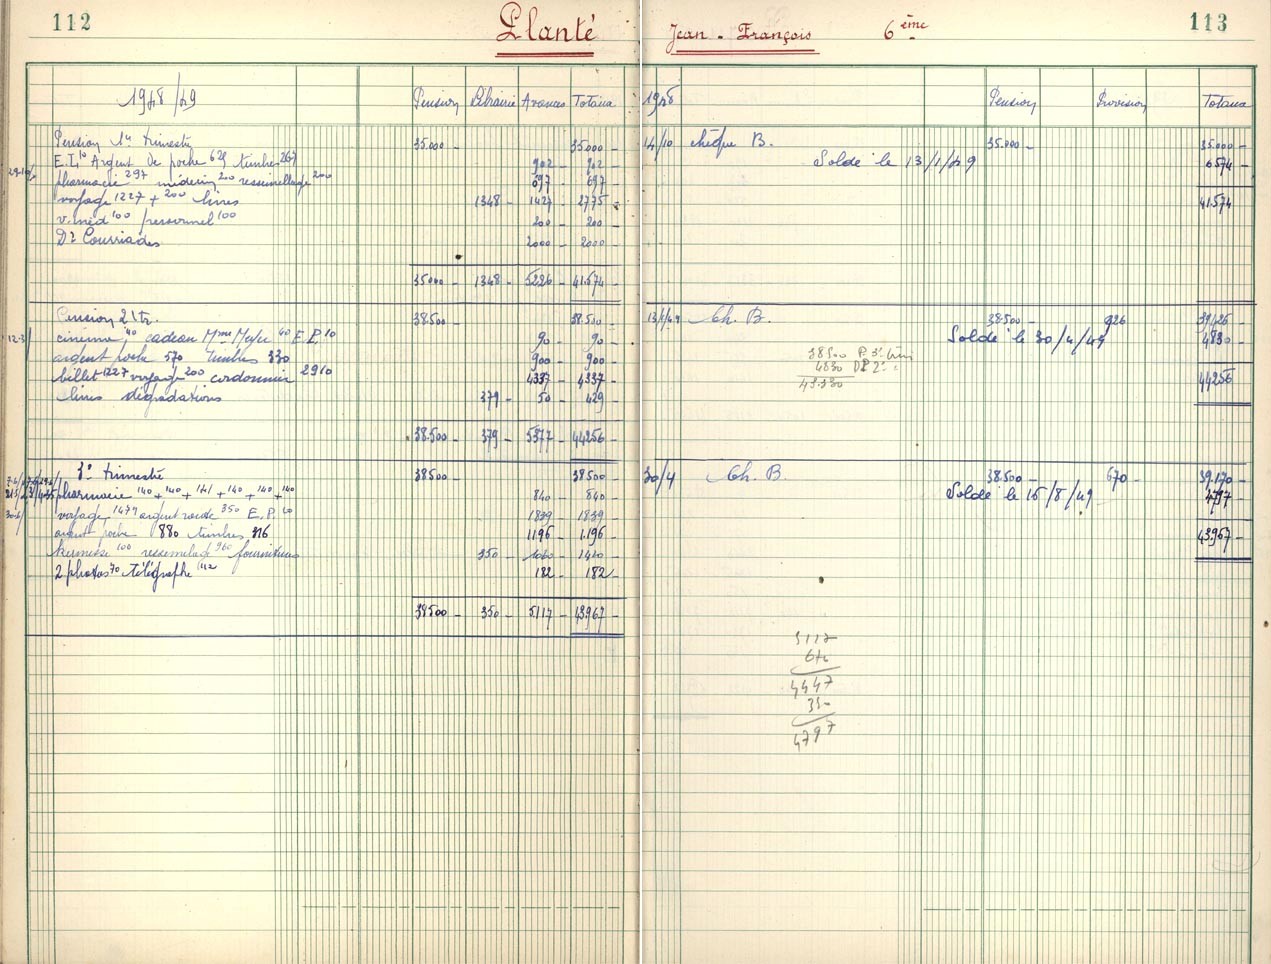 112
Planté
Jean-François 6ème
113
1948/49 Pension Librairie Avances Totaux
1948 Pension Provision Totaux
Pension 1er trimestre 35.000 - 35.000 -
E.L. 10 Argent de poche 625 timbres 267 902 - 902 -
29-10 pharmacie 297 médecin 200 ressemellage 200 697 - 697 -
voyage 1227 + 200 livres 1348 - 1427 - 2775 -
v. méd 100 personnel 100 200 - 200 -
Dr Courriades 2000 - 2000 -
35000 - 1348 - 5226 - 41.574 -
14/10 chèque B. 35.000 - 35.000 -
Solde le 13/1/49 6574
41.574
Pension 2 tr. 38.500 - 38.500 -
12-3 cinéma 40 cadeau Mme Meyer 40 E.P. 10 90 - 90 -
argent poche 570 timbres 330 900 - 900 -
billet 1227 voyage 200 cordonnier 2910 4337 - 4337 -
livres dégradations 379 - 50 - 429 -
38.500 - 379 - 5377 - 44256 -
13/1/49 Ch. B. 38.500 - 926 39426
Solde le 30/4/49 4830
44256
38500 P. 3e trim
4830 DP 2e
43.330
3e trimestre 38500 - 38500 -
pharmacie 140 + 140 + 141 + 140 + 140 + 140 840 - 840 -
voyage 1479 argent route 350 E.P. 10 1839 - 1839 -
argent poche 880 timbres 316 1196 - 1.196 -
kermesse 100 ressemelage 960 fournitures 350 - 1060 - 1410 -
2 photos 70 télégraphe 112 182 - 182 -
38500 - 350 - 5117 - 43967 -
30/4 Ch. B. 38.500 - 670 - 39.170 -
Solde le 15/8/49 4797
43967
5117
670
4447
350
4797